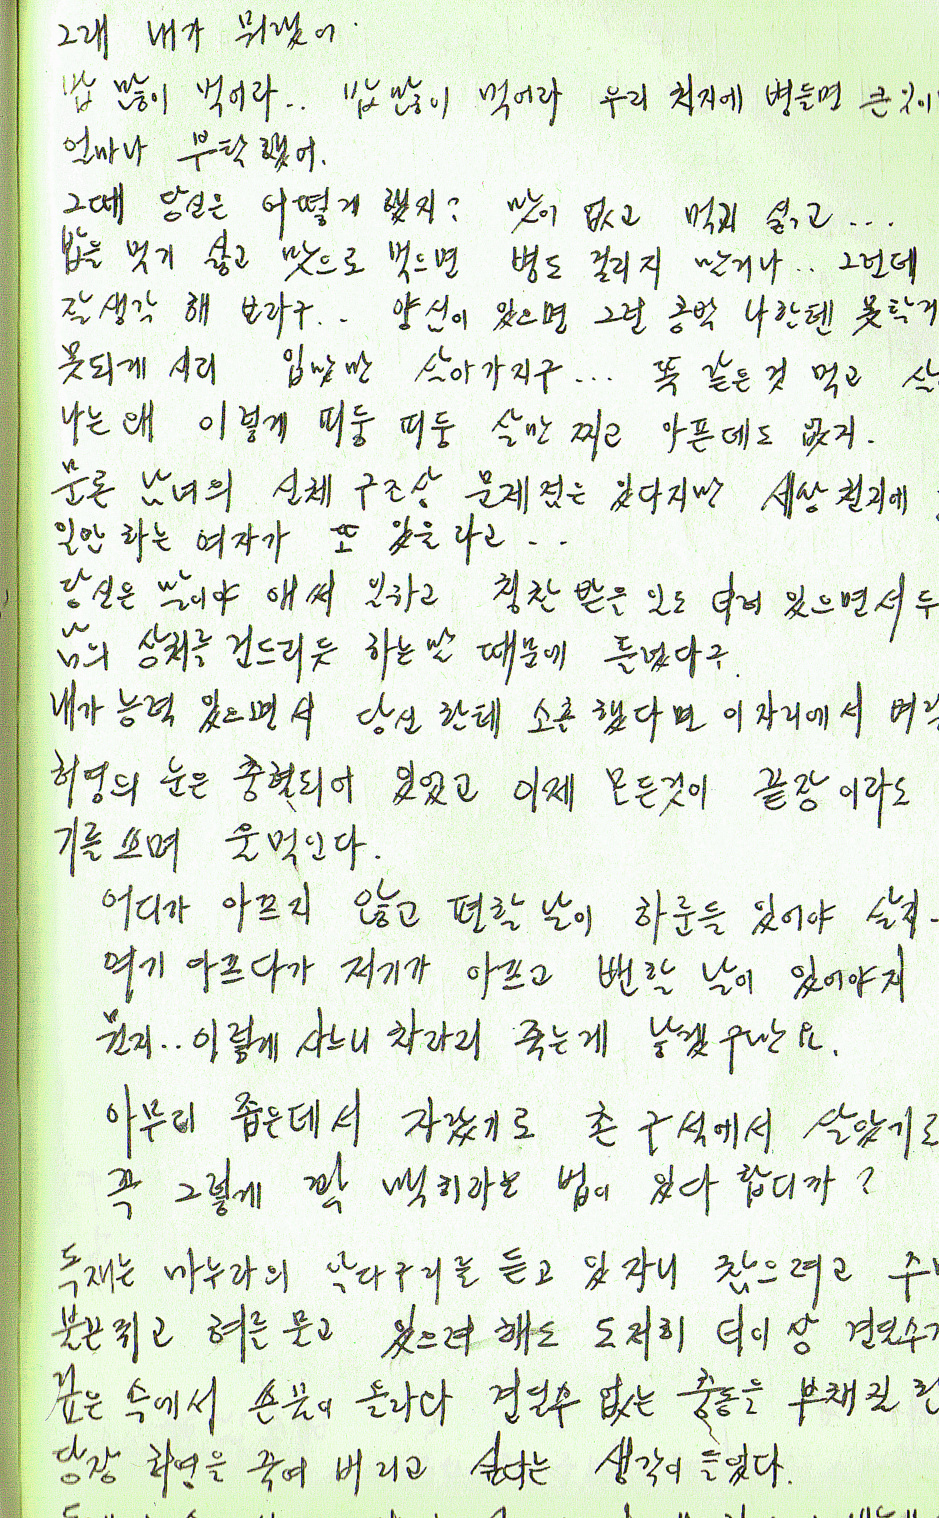 그래 내가 뭐랬어.
밥 많이 먹어라.. 밥 많이 먹어라 우리 처지에 병들면 큰일이
얼마나 부탁했어.
그때 당신은 어떻게 했지? 맛이 없고 먹기 싫고...
밥을 먹기 싫고 맛으로 먹으면 병도 걸리지 만거나.. 그런데
잘 생각 해 보라구.. 양심이 있으면 그런 공박 나한텐 못할거
못되게 시리 입맛만 살아가지구... 똑 같은것 먹고
나는 왜 이렇게 띠둥 띠둥 살만 찌고 아픈데도 없지.
물론 남녀의 신체 구조상 문제점은 있다지만 세상 천지에
일안 하는 여자가 또 있을라고...
당신은 말이야 애써 일하고 칭찬 받은 일도 더러 있으면서
남의 상처를 건드리듯 하는 말 때문에 틀렸다구.
내가 능력 있으면서 당신 한테 소홀 했다면 이 자리에서
허영의 눈은 충혈되어 있었고 이제 모든것이 끝장 이라도
기를 쓰며 울먹인다.
어디가 아프지 않고 편할 날이 하룬들 있어야 살지.
여기 아프다가 저기가 아프고 뺀할 날이 있어야지
원지.. 이렇게 사느니 차라리 죽는게 낳겠구만요.
아무리 좁은데서 자랐기로 촌구석에서 살았기로
꼭 그렇게 꽉 맥히라는 법이 있다 합디까?
독재는 마누라의 넋다구리를 듣고 있자니 참으려고
불끈쥐고 혀를 물고 있으려 해도 도저히 더이상 견딜수가
깊은 속에서 손끝이 올라다 견딜수 없는 충동을
당장 허영을 죽여 버리고 싶다는 생각이 들었다.